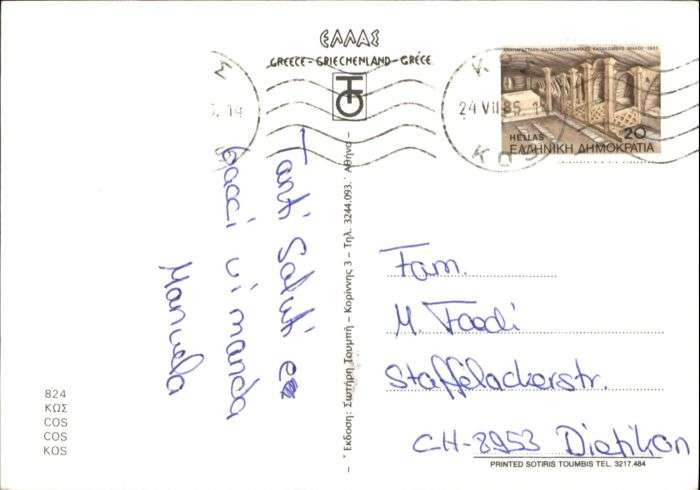 ΕΛΛΑΣ
GREECE - GRIECHENLAND - GRÉCE
24 VII 85
ΚΩΣ
HELLAS
20
ΕΛΛΗΝΙΚΗ ΔΗΜΟΚΡΑΤΙΑ
Tanti Saluti e
bacci vi manda
Manuela
Έκδοση: Σωτήρη Τουμπή - Κορίννης 3 - Τηλ. 3244.093. Αθήνα -
Fam.
M. Foodi
Staffelackerstr.
CH-8953 Dietikon
824
ΚΩΣ
COS
COS
KOS
PRINTED SOTIRIS TOUMBIS TEL. 3217.484